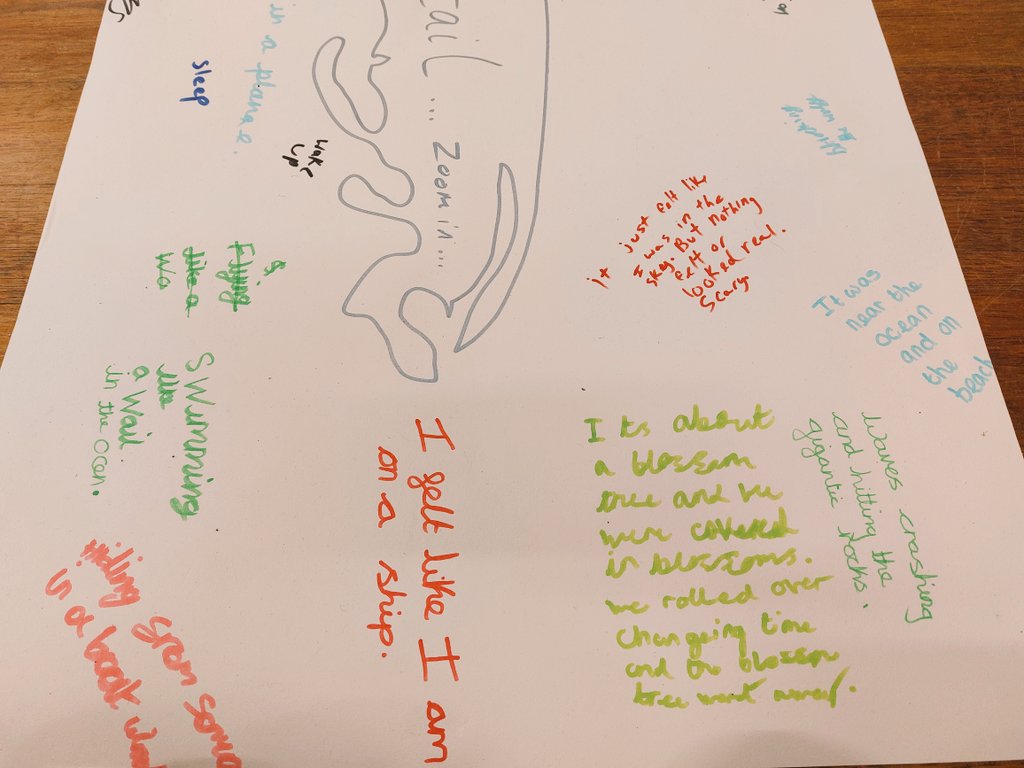 in a plane.
sleep
wake
up
tail ... Zoom in ...
it just felt like
I was in the
sky. But nothing
felt or
looked real.
Scary
It was
near the
ocean
and on
the
beach
&
Flying
like a
Wa
Swimming
like
a Wail
in the Ocen.
I felt like I am
on a ship.
I ts about
a blossom
tree and we
were covered
in blossoms.
we rolled over
changeing time
and the blossom
tree went away.
Waves crashing
and hitting the
gigantic rocks.